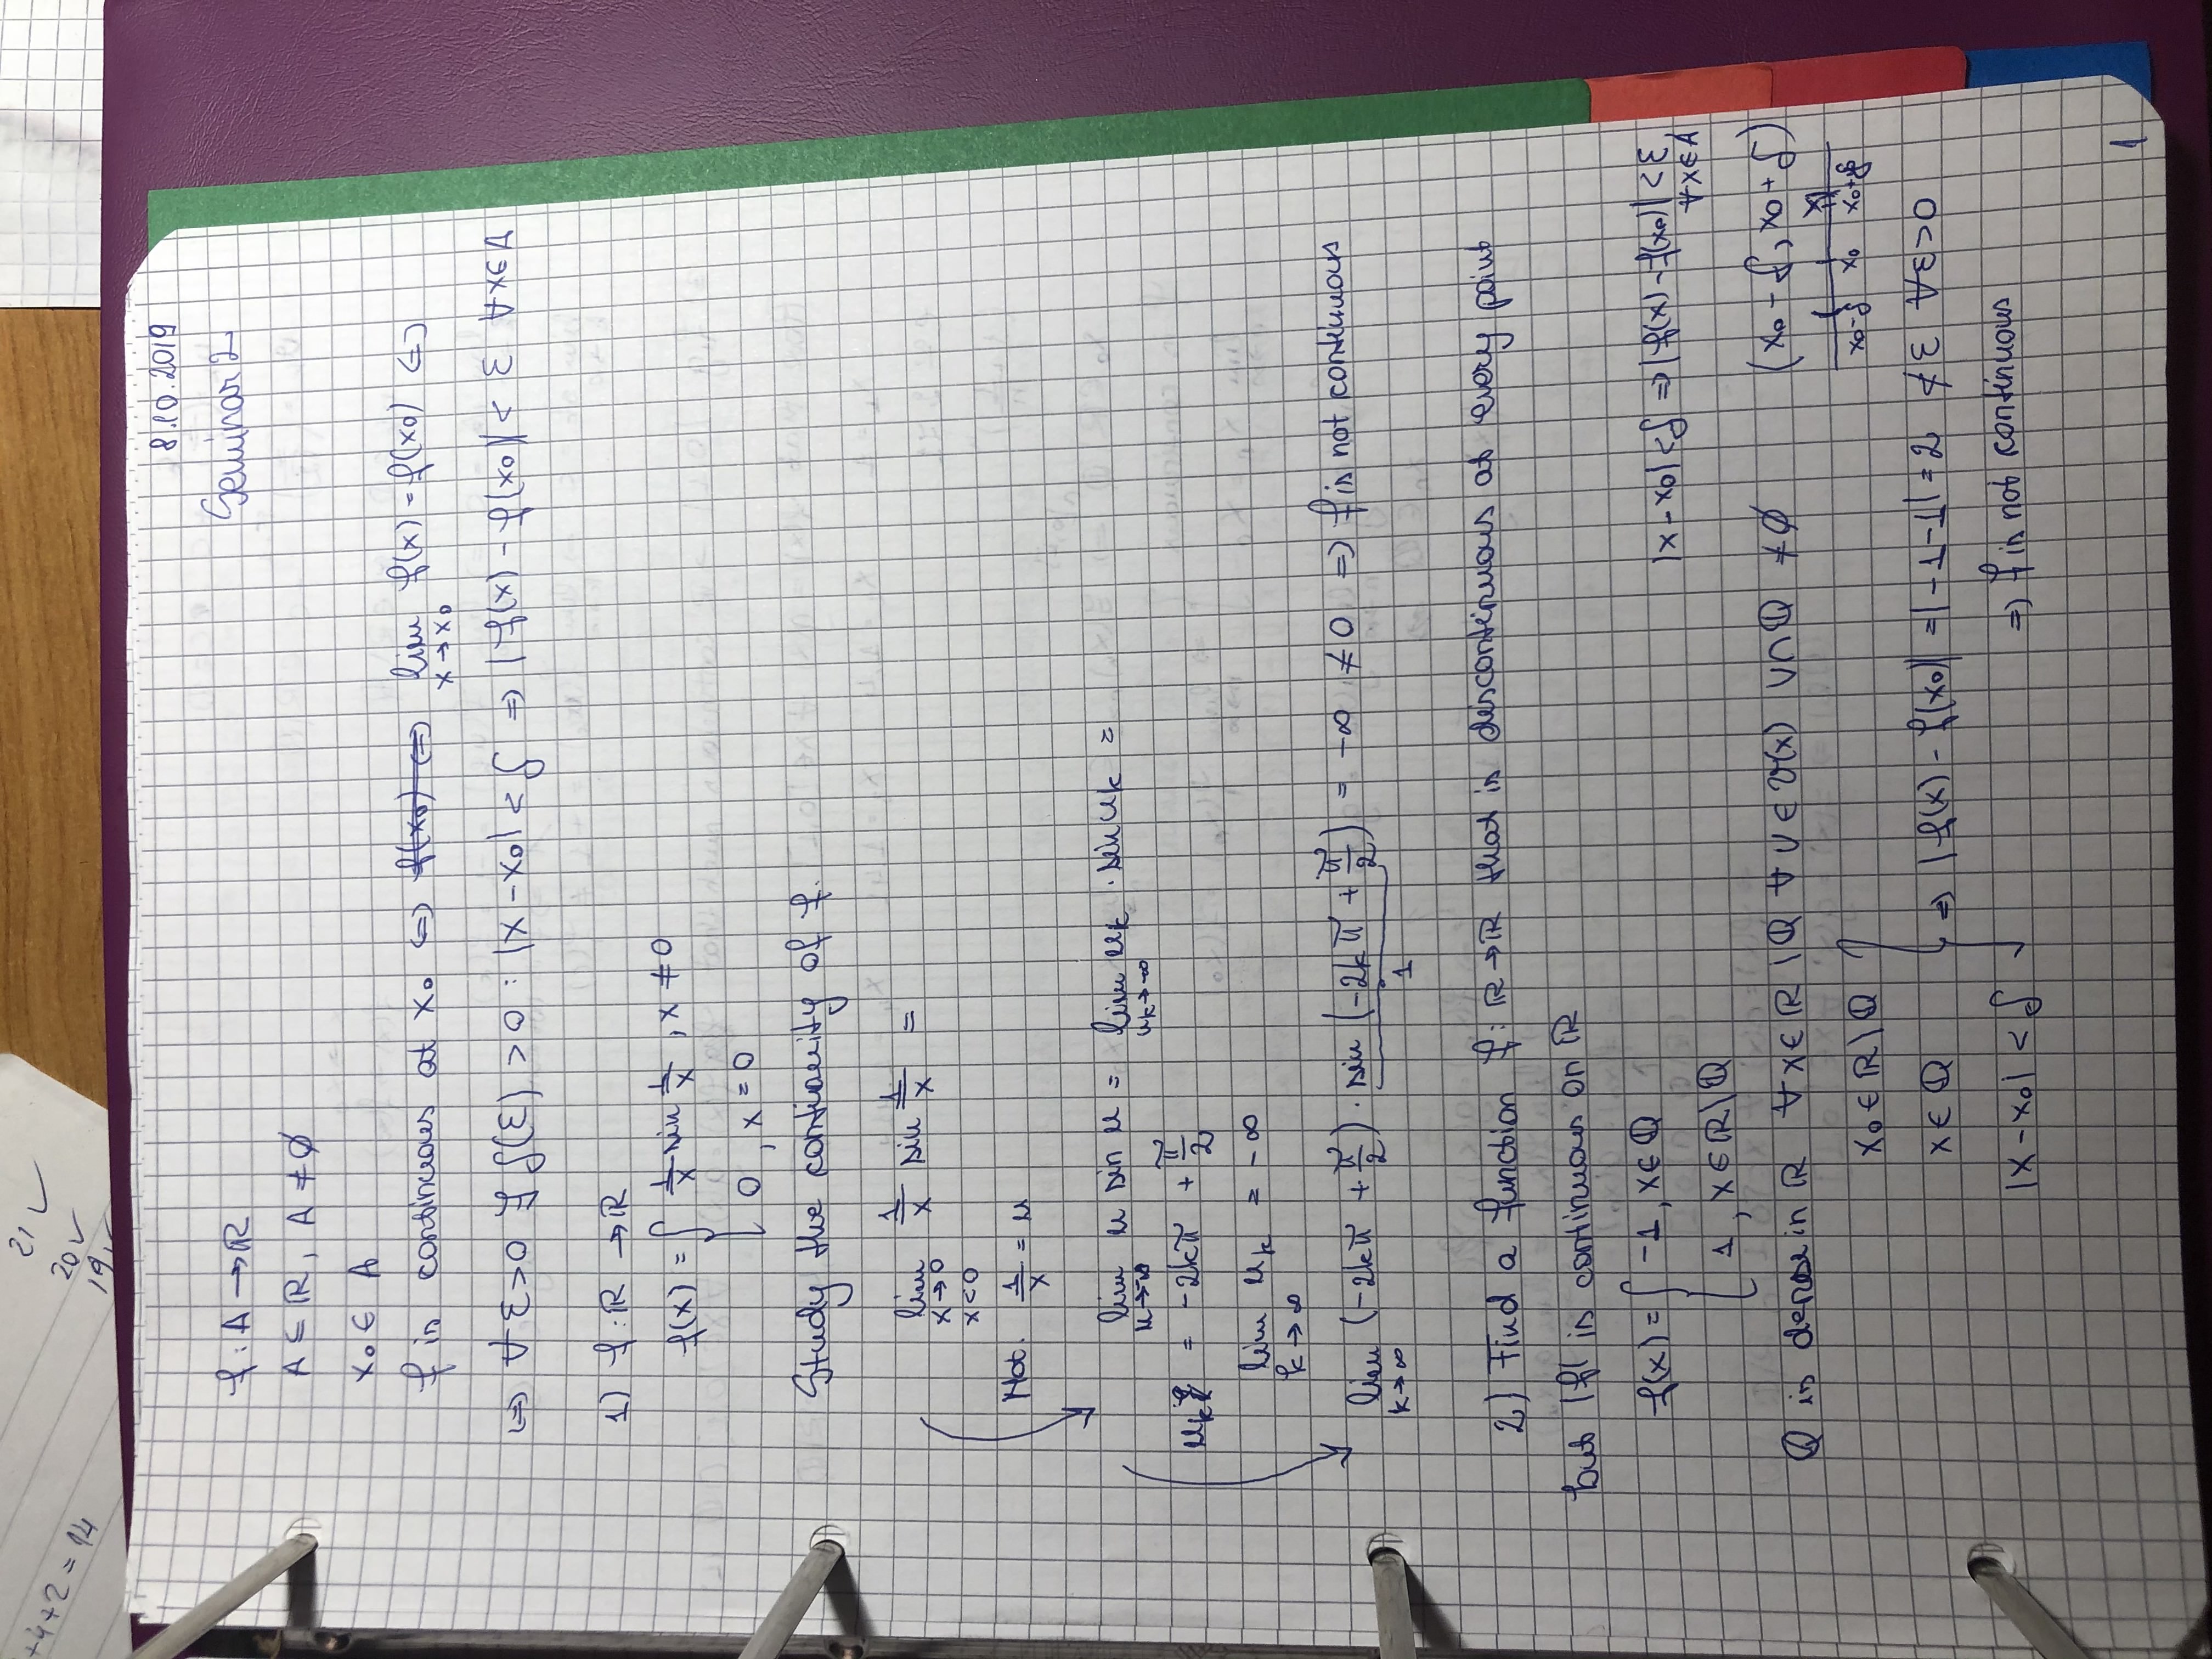 +4+2 = 14
21 ✓
20 ✓
19 ✓
8.10.2019
Seminar 2
f : A → ℝ
A ⊆ ℝ, A ≠ ∅
x₀ ∈ A
f is continuous at x₀ ⇔ f(x₀) ⇔ lim f(x) = f(x₀) ⇔
x → x₀
⇔ ∀ ε > 0 ∃ δ(ε) > 0 : |x - x₀| < δ ⇒ |f(x) - f(x₀)| < ε ∀x∈A
1) f : ℝ → ℝ
f(x) = { 1/x sin 1/x , x ≠ 0
0 , x = 0
Study the continuity of f.
lim 1/x sin 1/x =
x → 0
x < 0
Not. 1/x = u
lim u sin u = lim u_k · sin u_k =
u → -∞ u_k → -∞
u_k = -2kπ + π/2
lim u_k = -∞
k → ∞
lim (-2kπ + π/2) · sin (-2kπ + π/2) = -∞ ≠ 0 ⇒ f is not continuous
k → ∞ 1
2) Find a function f : ℝ → ℝ that is discontinuous at every point
but |f| is continuous on ℝ
f(x) = { -1 , x ∈ ℚ
1 , x ∈ ℝ \ ℚ
|x - x₀| < δ ⇒ |f(x) - f(x₀)| < ε,
∀x∈A
ℚ is dense in ℝ ∀x∈ℝ \ ℚ ∀ V ∈ 𝒱(x) V ∩ ℚ ≠ ∅
(x₀ - δ, x₀ + δ)
x
x₀-δ x₀ x₀+δ
x₀ ∈ ℝ \ ℚ
x ∈ ℚ
⇒ |f(x) - f(x₀)| = |-1-1| = 2 ≮ ε ∀ε>0
|x - x₀| < δ
⇒ f is not continuous
1